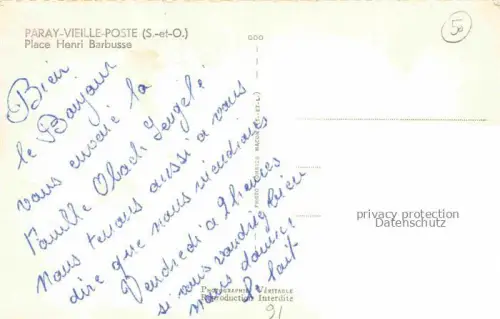 PARAY-VIEILLE-POSTE (S.-et-O.)
Place Henri Barbusse
GDO
50
Bien
le Bonjour
vous envoyé la
Famille Obach
Nous tenons aussi a vous
dire que nous viendrions
Vendredi a 2 heures
si vous voudriez bien
nous donnier
le lait
privacy protection
Datenschutz
PHOTOGRAPHIE VÉRITABLE
Reproduction Interdite
91